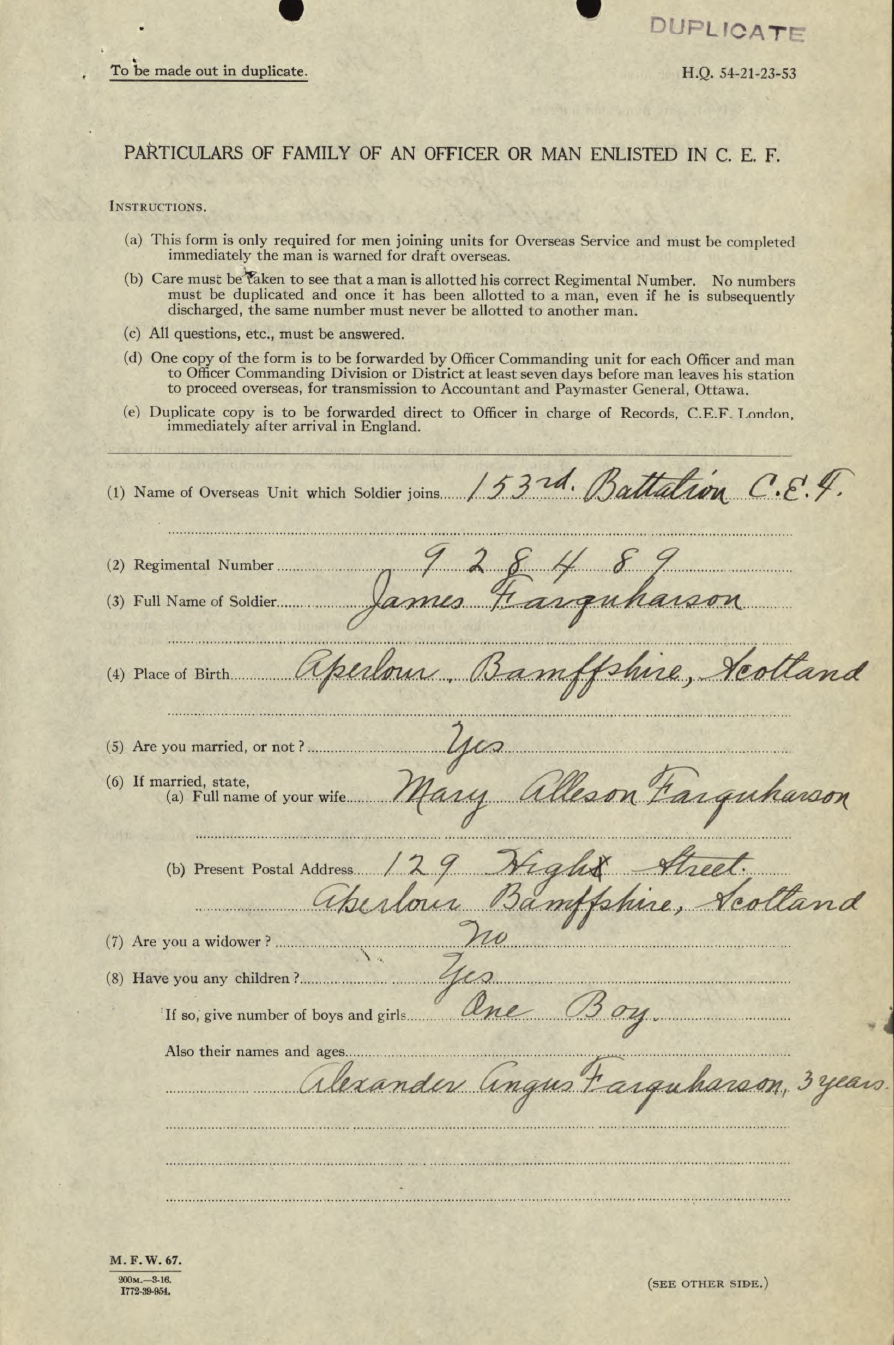 DUPLICATE
To be made out in duplicate.
H.Q. 54-21-23-53
PARTICULARS OF FAMILY OF AN OFFICER OR MAN ENLISTED IN C. E. F.
INSTRUCTIONS.
(a) This form is only required for men joining units for Overseas Service and must be completed
immediately the man is warned for draft overseas.
(b) Care must be taken to see that a man is allotted his correct Regimental Number. No numbers
must be duplicated and once it has been allotted to a man, even if he is subsequently
discharged, the same number must never be allotted to another man.
(c) All questions, etc., must be answered.
(d) One copy of the form is to be forwarded by Officer Commanding unit for each Officer and man
to Officer Commanding Division or District at least seven days before man leaves his station
to proceed overseas, for transmission to Accountant and Paymaster General, Ottawa.
(e) Duplicate copy is to be forwarded direct to Officer in charge of Records, C.E.F. London,
immediately after arrival in England.
(1) Name of Overseas Unit which Soldier joins 153rd. Battalion C.E.F.
(2) Regimental Number 928489
(3) Full Name of Soldier James Farquharson
(4) Place of Birth Aperlour, Bamffshire, Scotland
(5) Are you married, or not? Yes
(6) If married, state,
(a) Full name of your wife Mary Alleson Farquharson
(b) Present Postal Address 129 High Street.
Aberlour Bamffshire, Scotland
(7) Are you a widower? No
(8) Have you any children? Yes
If so, give number of boys and girls One Boy.
Also their names and ages
Alexander Angus Farquharson, 3 years.
M. F. W. 67.
200M.—3-16.
1772-39-954.
(SEE OTHER SIDE.)